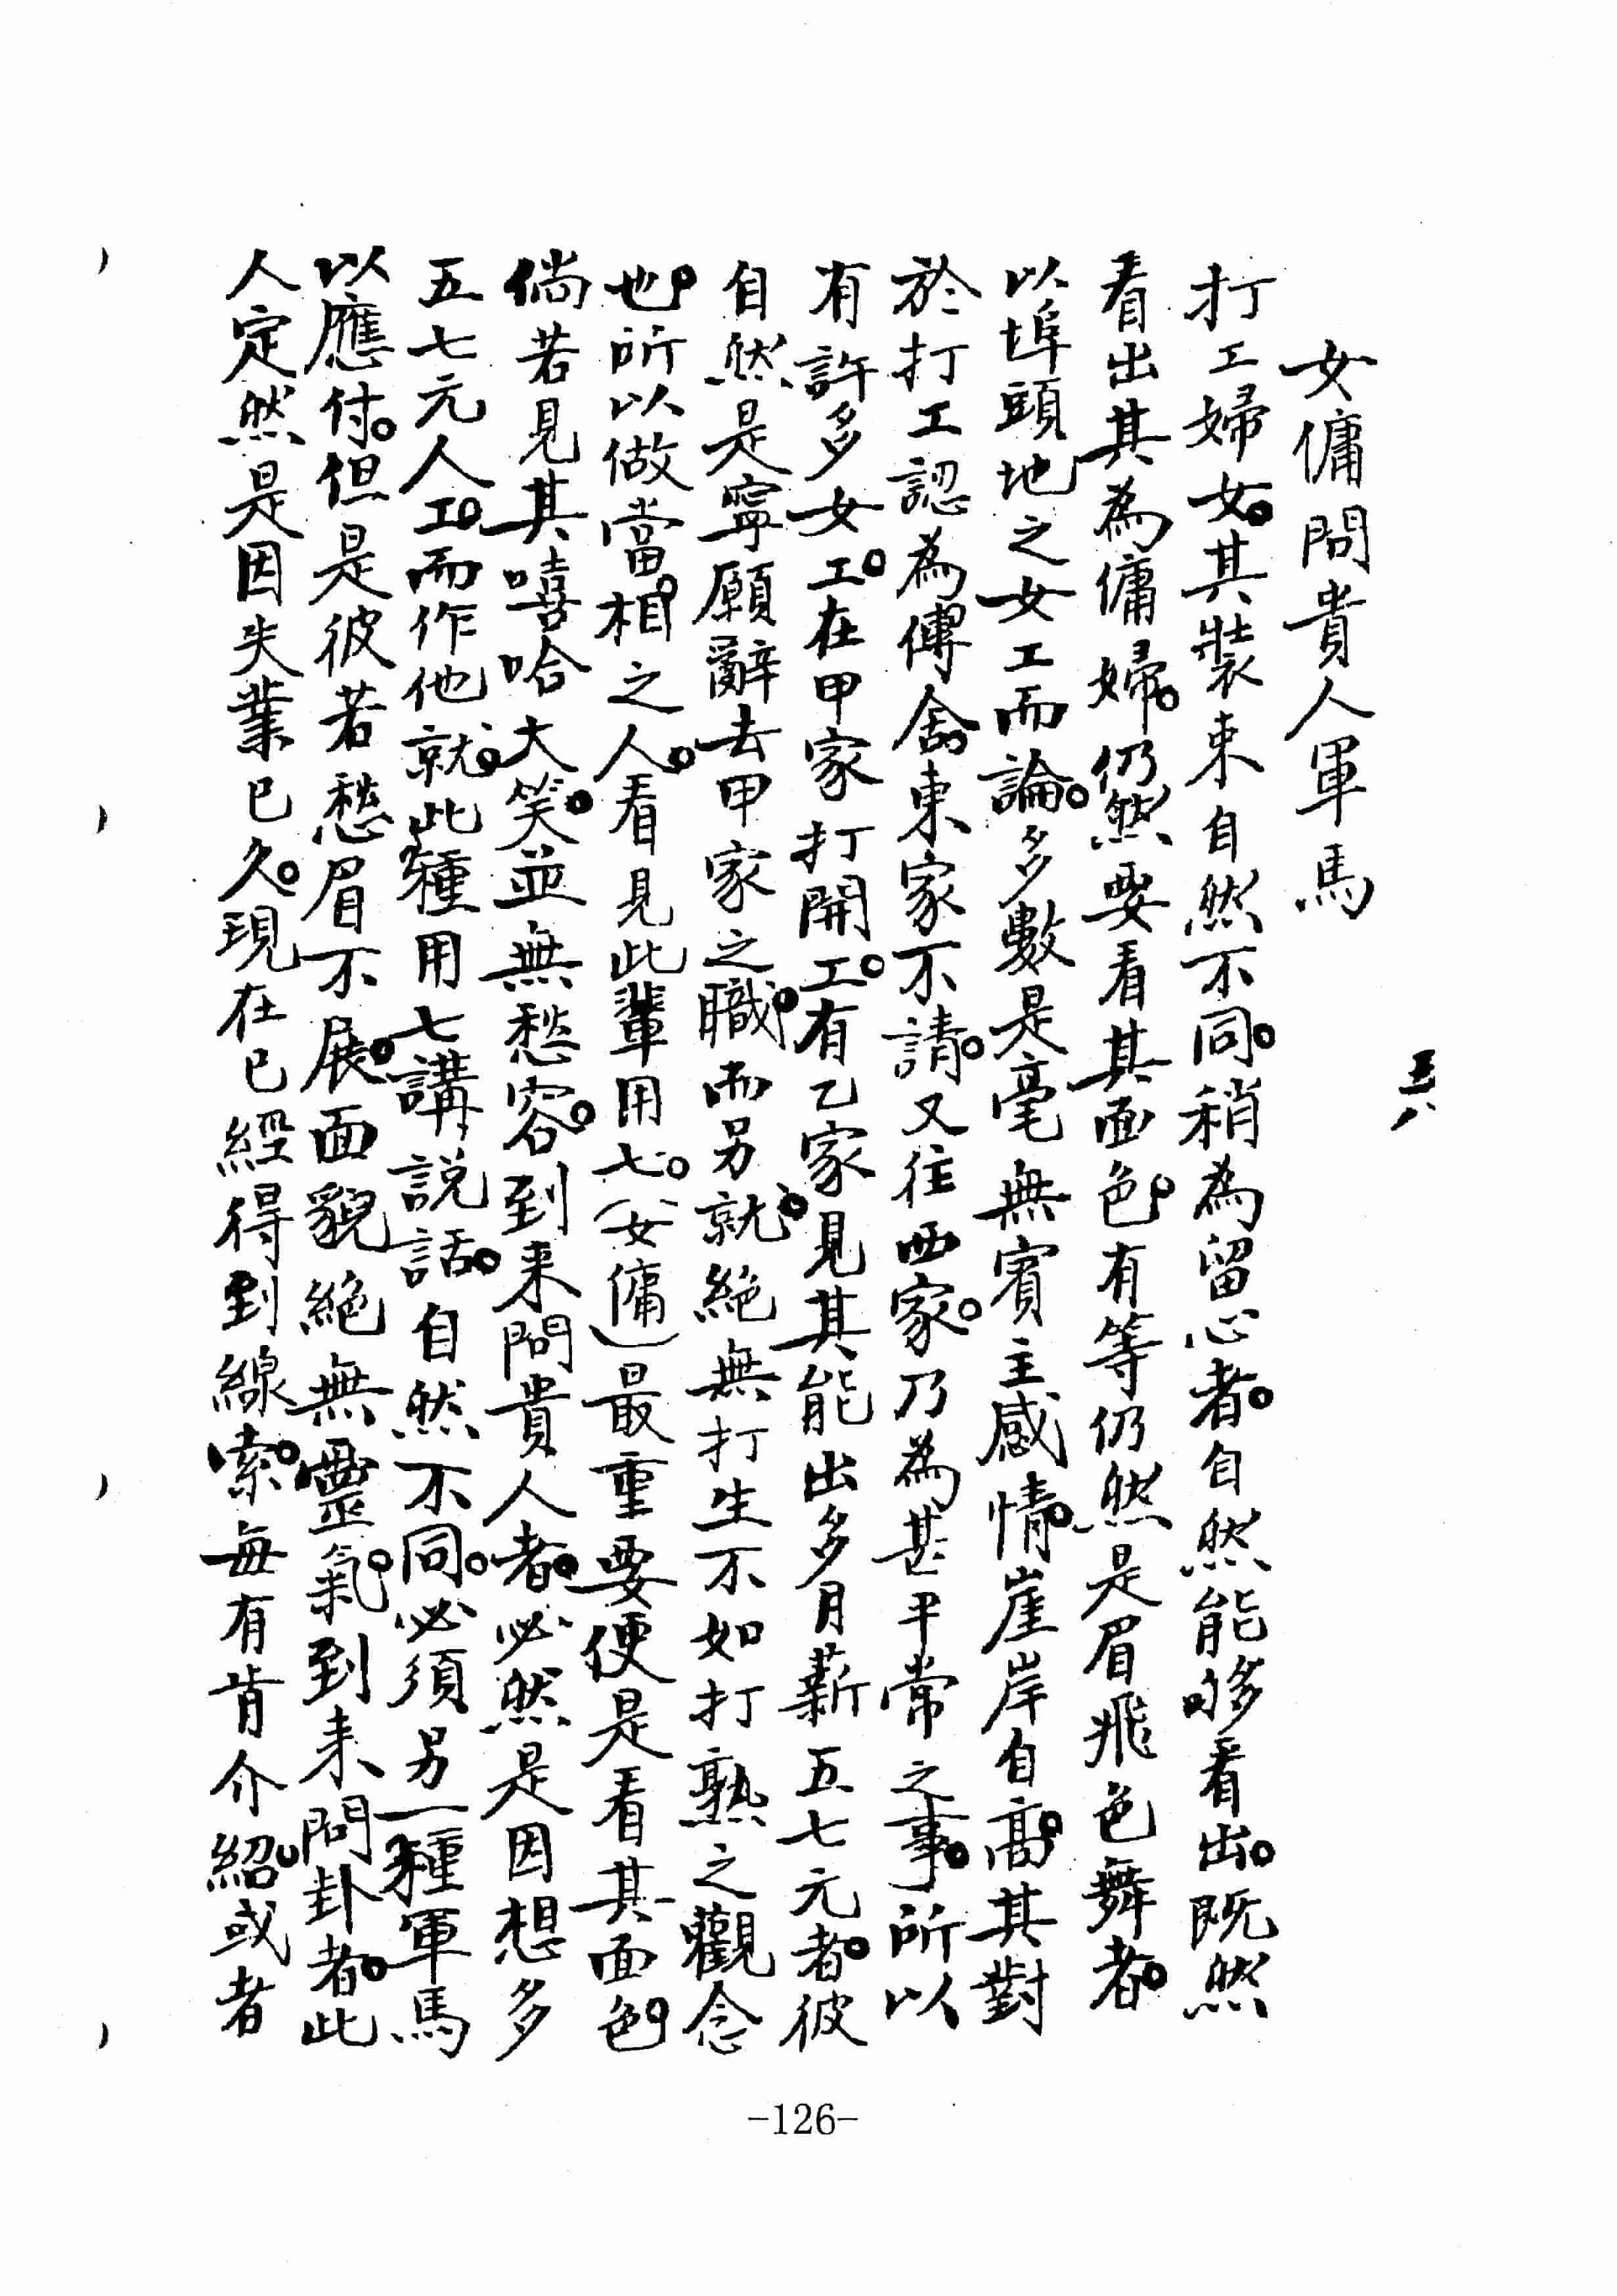 五八
女傭問貴人軍馬
打工婦女。其裝束自然不同。稍為留心者。自然能够看出。既然
看出其為傭婦。仍然要看其面色。有等仍然是眉飛色舞者。
以埠頭地之女工而論。多數是毫無賓主感情。崖岸自高。其對
於打工認為傳舍。東家不請。又往西家。乃為甚平常之事。所以
有許多女工。在甲家打開工。有乙家見其能出多月薪五七元者。彼
自然是寧願辭去甲家之職。而另就。絕無打生不如打熟之觀念
也。所以做當相之人。看見此輩用七。(女傭)最重要便是看其面色。
倘若見其嘻哈大笑。並無愁容。到来問貴人者。必然是因想多
五七元人工。而作他就。此種用七講説話。自然不同。必須另一種軍馬
以應付。但是彼若愁眉不展。面貌絕無靈氣。到来問卦者。此
人定然是因失業已久。現在已經得到線索。每有肯介紹。或者
-126-